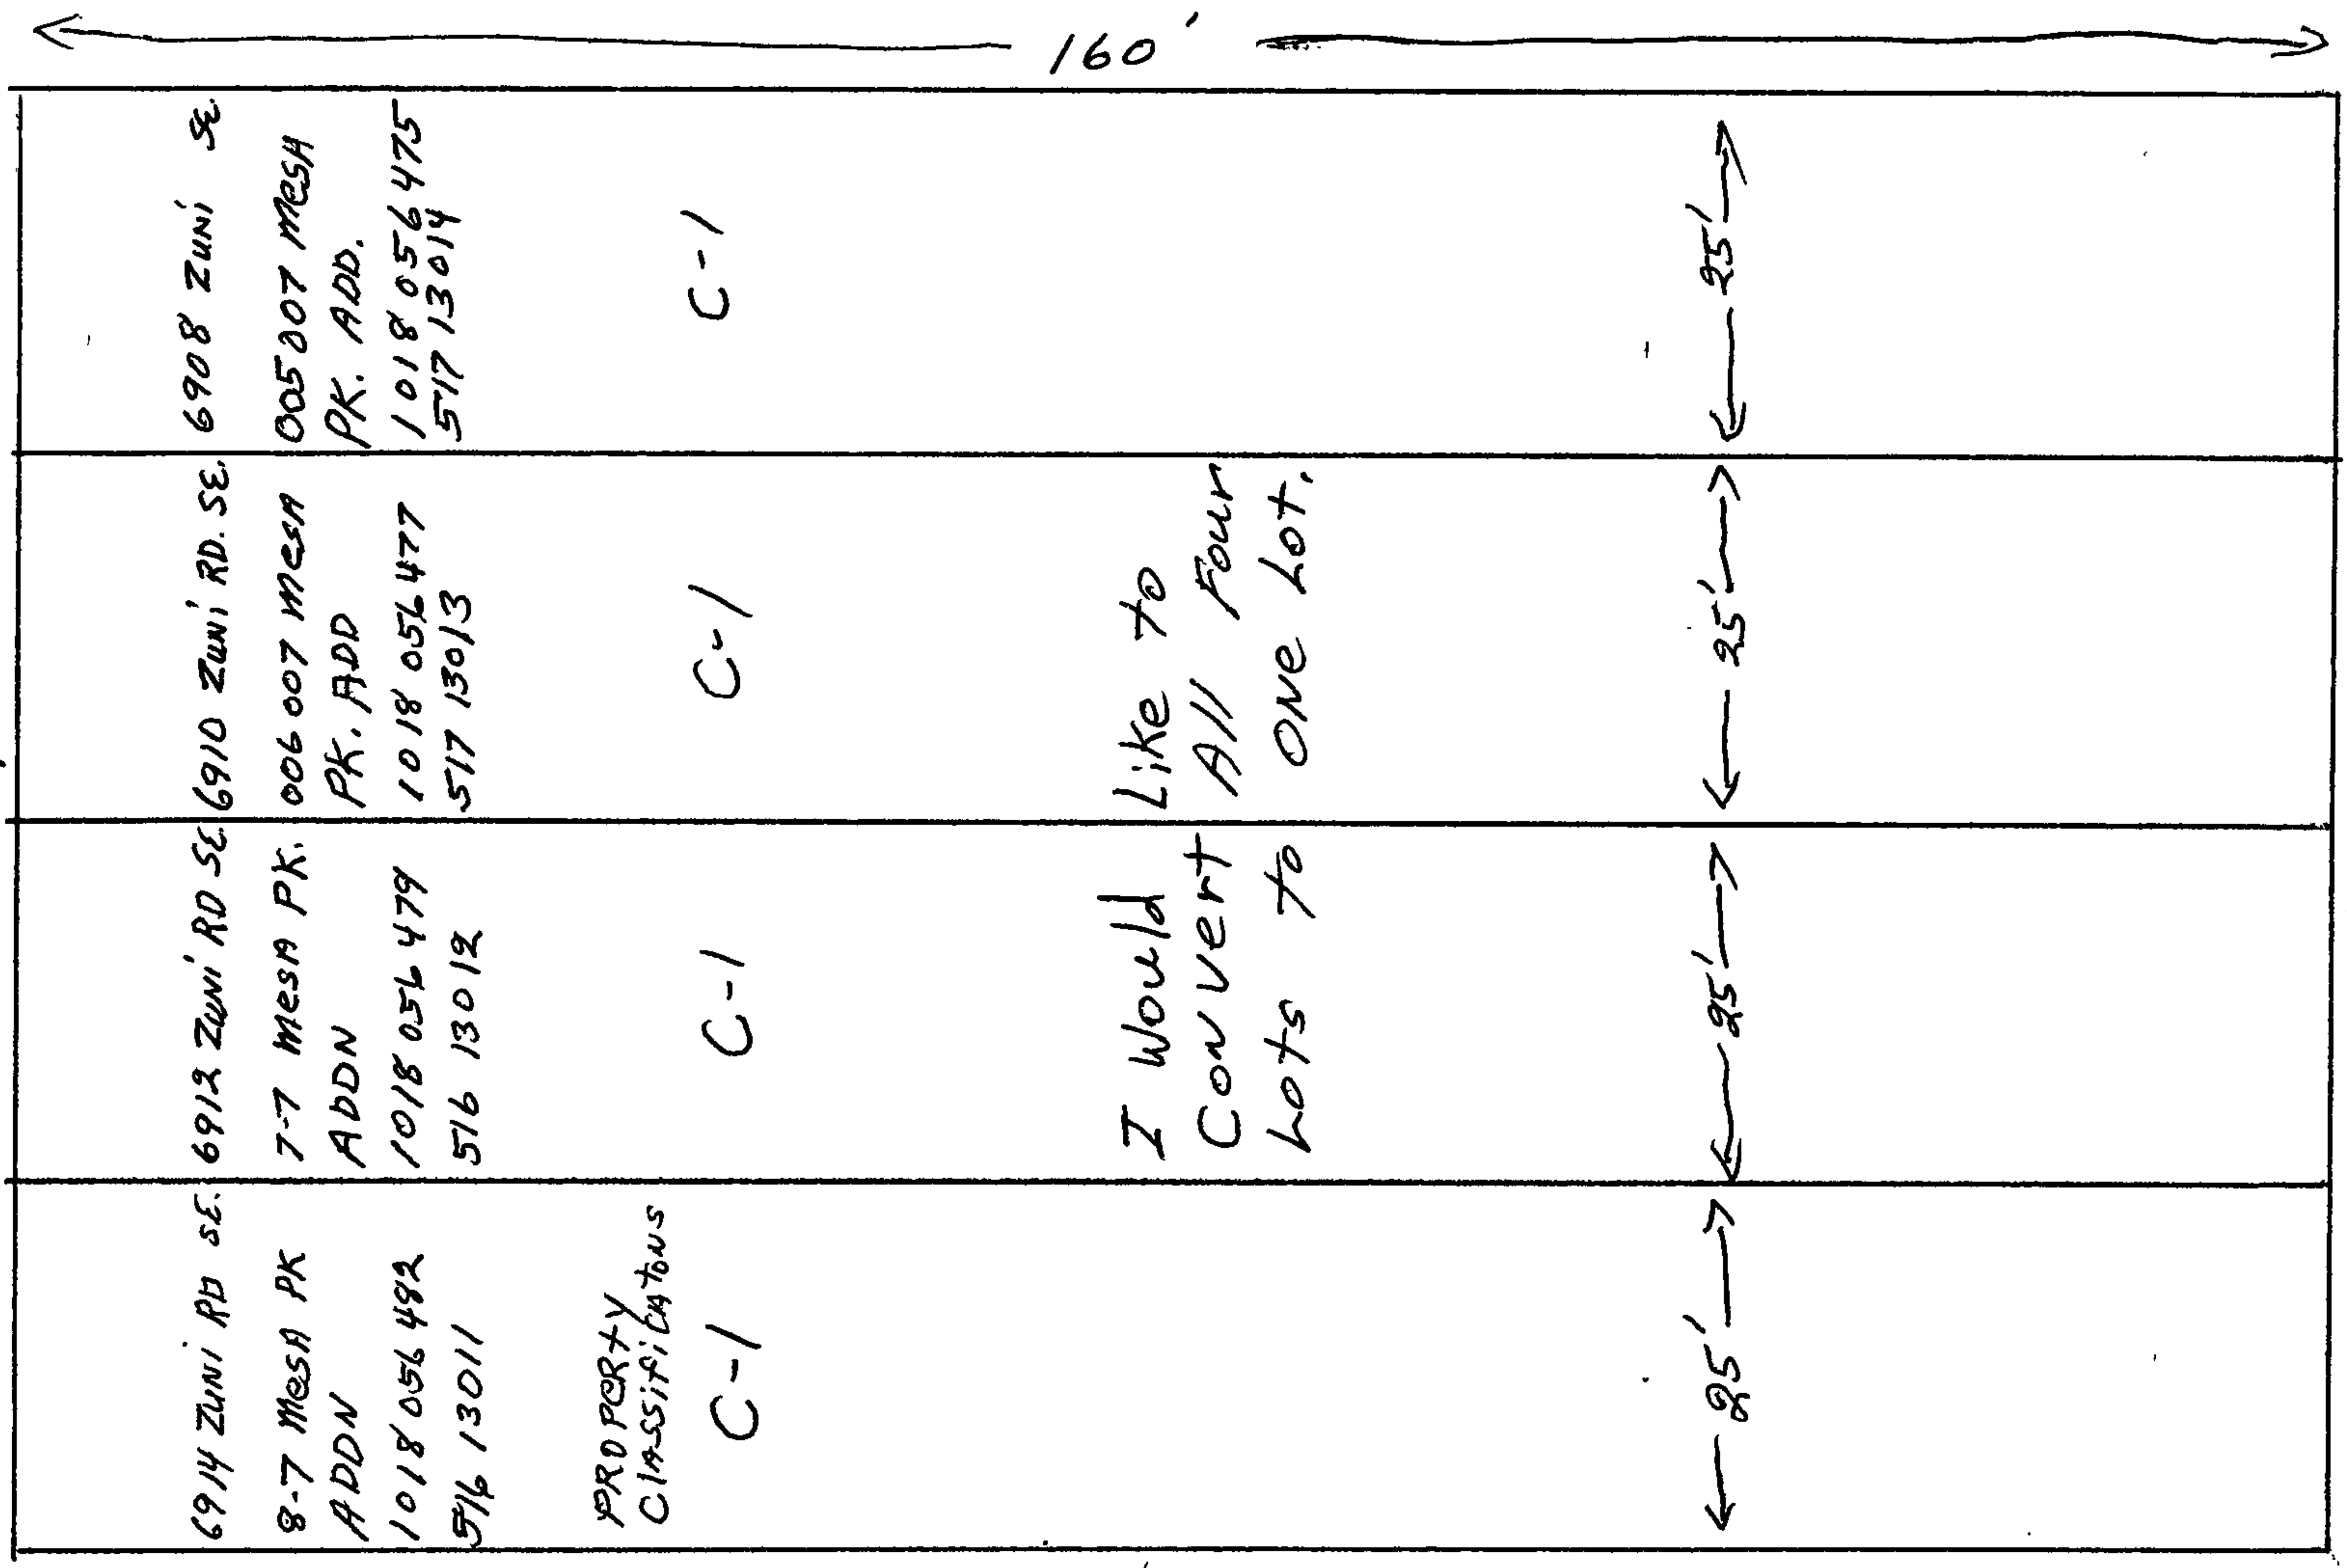 160'
6914 ZUNI RD SE.
8-7 MesA PK
ADDN
1018 056 482
516 13011
PROPERTY
ClASSifiCAtONS
C-1
25'
6912 ZUNI RD SE
7-7 MesA PK.
ADDN
1018 056 479
516 13012
C-1
25'
6910 ZUNI RD. SE.
006 007 MesA
PK. ADD
1018 056 477
517 13013
C-1
25'
6908 ZUNI SE
005 007 MesA
PK. ADD.
1018 056 475
517 13014
C-1
25'
I Would Like to
Convert All Four
Lots to ONe Lot.